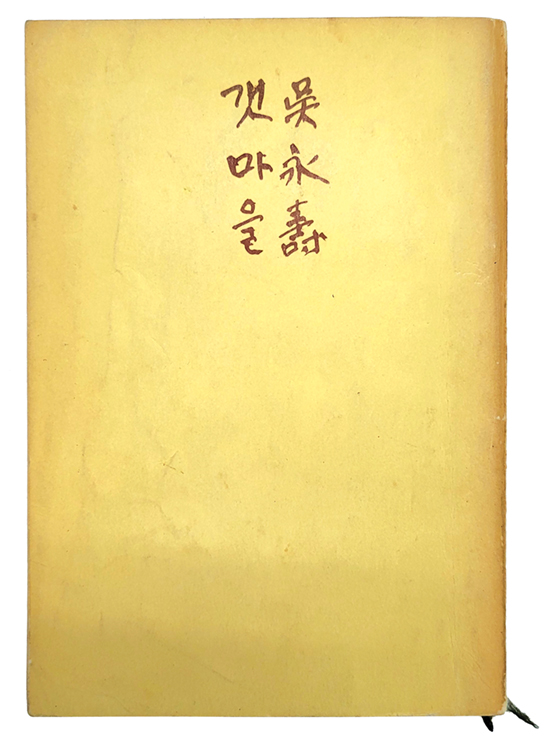 吳永壽
갯마을